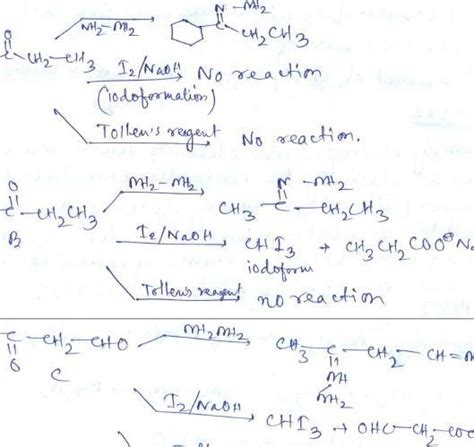 N-NH2
NH2-NH2
C
CH2CH3
O
C-CH2-CH3
I2/NaOH
No reaction
(iodoformation)
Tollen's reagent
No reaction.
O
NH2-NH2
N-NH2
CH3-C-CH2CH3
C-CH2CH3
B
I2/NaOH
CHI3 + CH3CH2COO⊖Na
iodoform
Tollen's reagent
no reaction
NH2NH2
C-CH2-CHO
O
CH3-C-CH2-CH=N
NH
NH2
C
I2/NaOH
CHI3 + OHC-CH2-COO